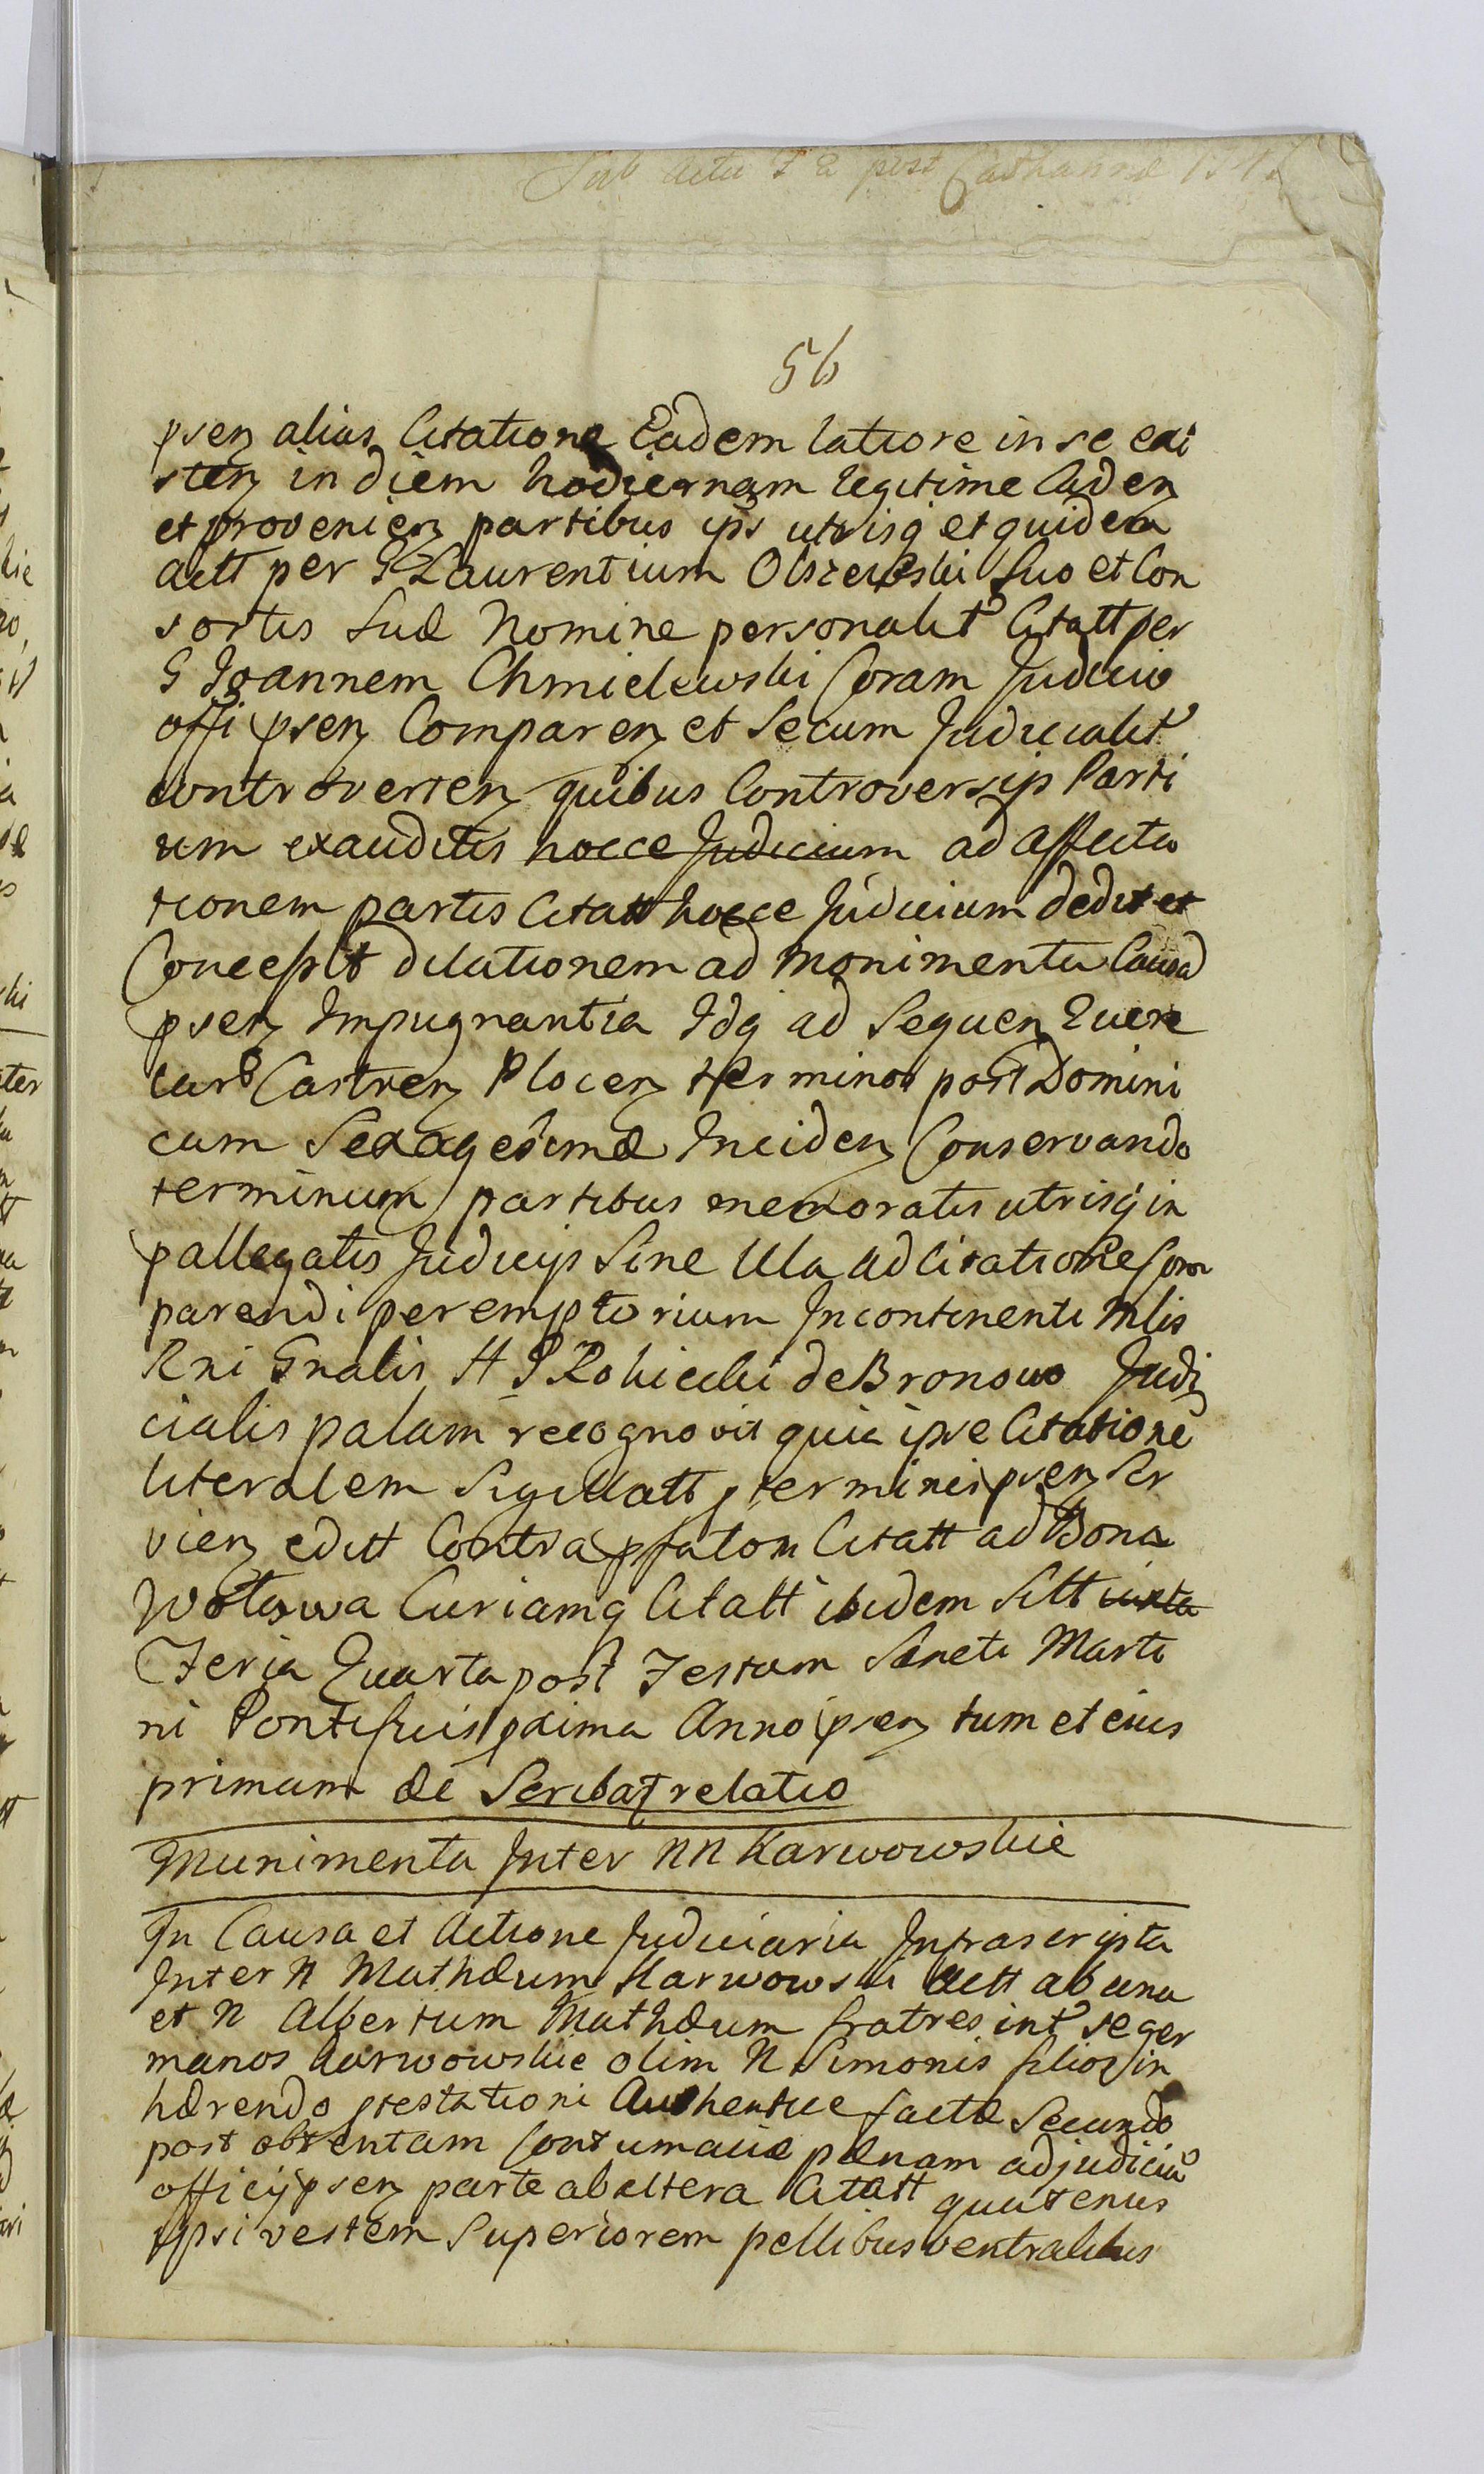 Sub Actu F 2 post Catharinæ
56
psen alias Citatione Eadem latiore in se exi
sten in diem hodiernam legitime Caden
et provenien partibus ips utrisq et quidem
actt per G Laurentium Olszewski Suo et Con
sortis Suæ Nomine personalit Citatt per
G Joannem Chmielewski Coram Judicio
offi psen Comparen et Secum Judicialit
controverten quibus Controversijs Parti
um exauditis hocce Judicium ad affecta
tionem partis Citatt hocce Judicium dedit et
Concessit dilationem ad monimenta Causa
psen Impugnantia Idq ad Sequen Quere
lar Castren Plocen terminos post Domini
cam Sexagesimæ Inciden Conservando
terminum partibus memoratis utrisq in
pallegatis Judicijs Sine Ulla adcitatione Com
parendi peremptorium Incontinenti Mlis
Rni Gnalis H P Rokicki de Bronowo Judi
cialis palam recognovit quia ipse Citatione
literalem Sigillatt p termini psen Ser
vien editt Contra pfatom Citatt ad Bona
Wotowa Curiamq Citatt ibidem Sitt iuxta
Feria Quarta post Festum Sancti Marti
ni Pontificis pxima Anno psen tum et eius
primam de Scribat relatio
Munimenta Inter NN Karwowskie
In Causa et Actione Judiciaria Infrascripta
Inter N Mathæum Karwowski Actt ab una
et N Albertum Mathæum fratres int se ger
manos Karwowskie olim N Simonis filios in
hærendo ptestationi Authentice factæ Secundo
post obtentam Contumaciæ pænam adjudiciu
officij psen parte ab altera Citatt quatenus
ipsi vestem Superiorem pellibus ventralibus